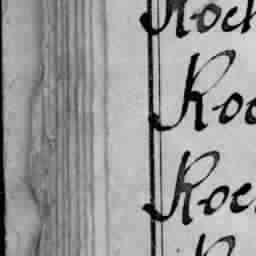 Roch
Roc
Roc